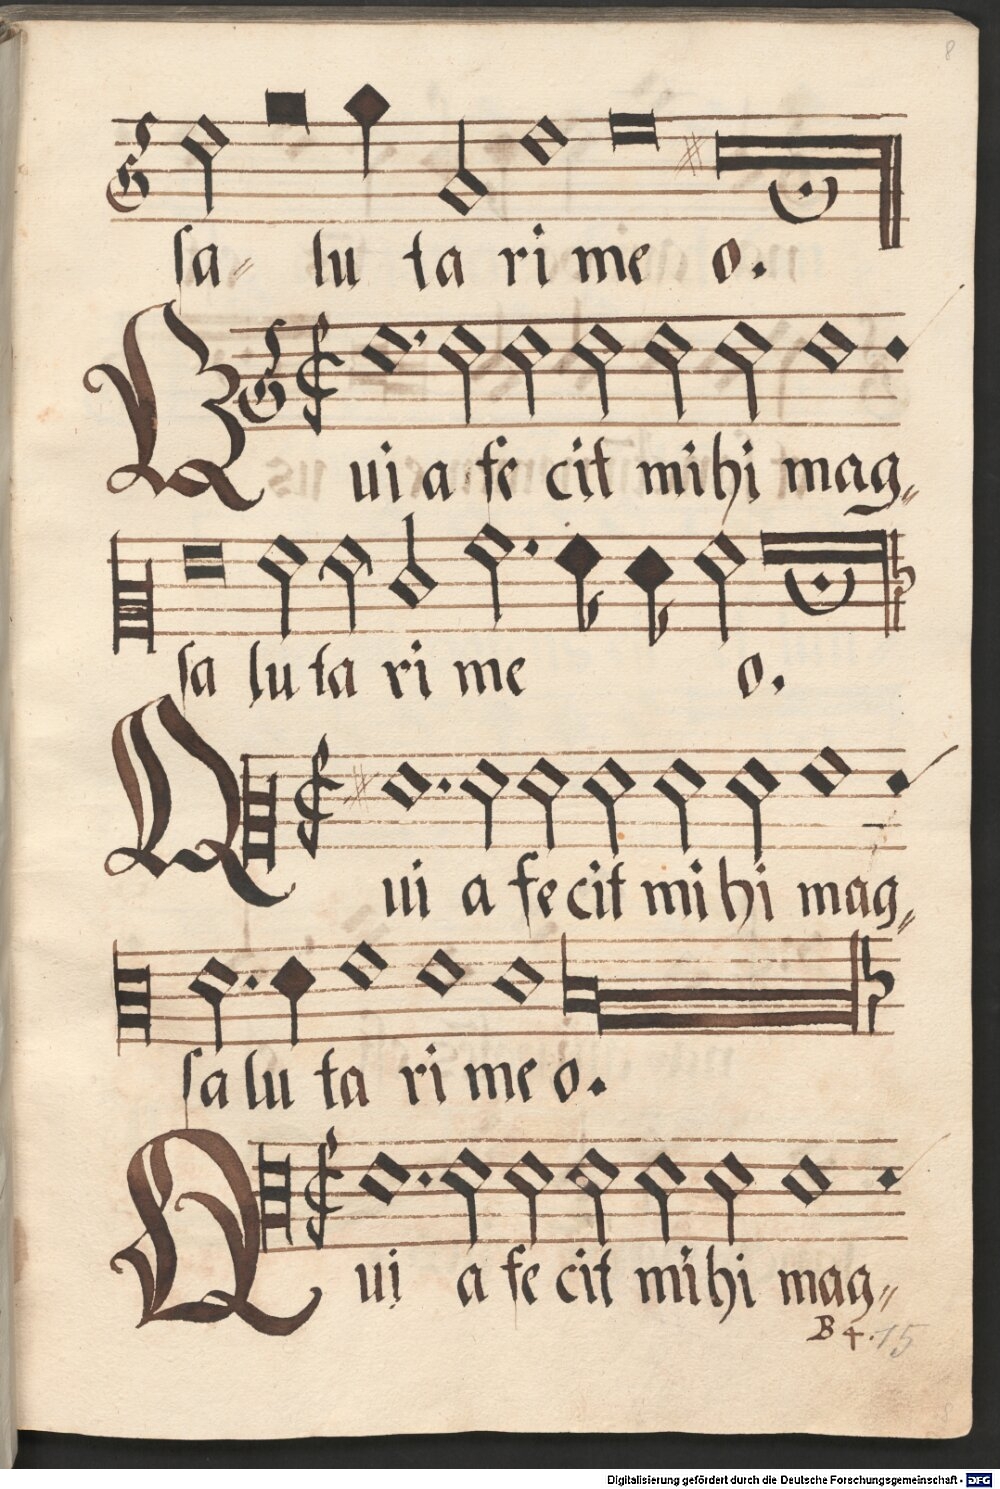 8
sa⸗ lu ta ri me o.
Qui a fe cit mihi mag⸗
sa lu ta ri me o.
Qui a fe cit mi hi mag⸗
sa lu ta ri me o.
Qui a fe cit mihi mag⸗
B 4. 15
Digitalisierung gefördert durch die Deutsche Forschungsgemeinschaft - DFG